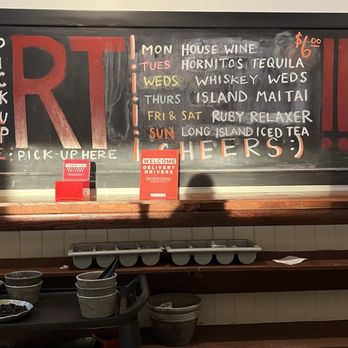 PICK UP
RT
: PICK-UP HERE
MON HOUSE WINE
$6.00
TUES HORNITOS TEQUILA
WEDS WHISKEY WEDS
THURS ISLAND MAI TAI
FRI & SAT RUBY RELAXER
SUN LONG ISLAND ICED TEA
CHEERS :)
WELCOME
DELIVERY
DRIVERS